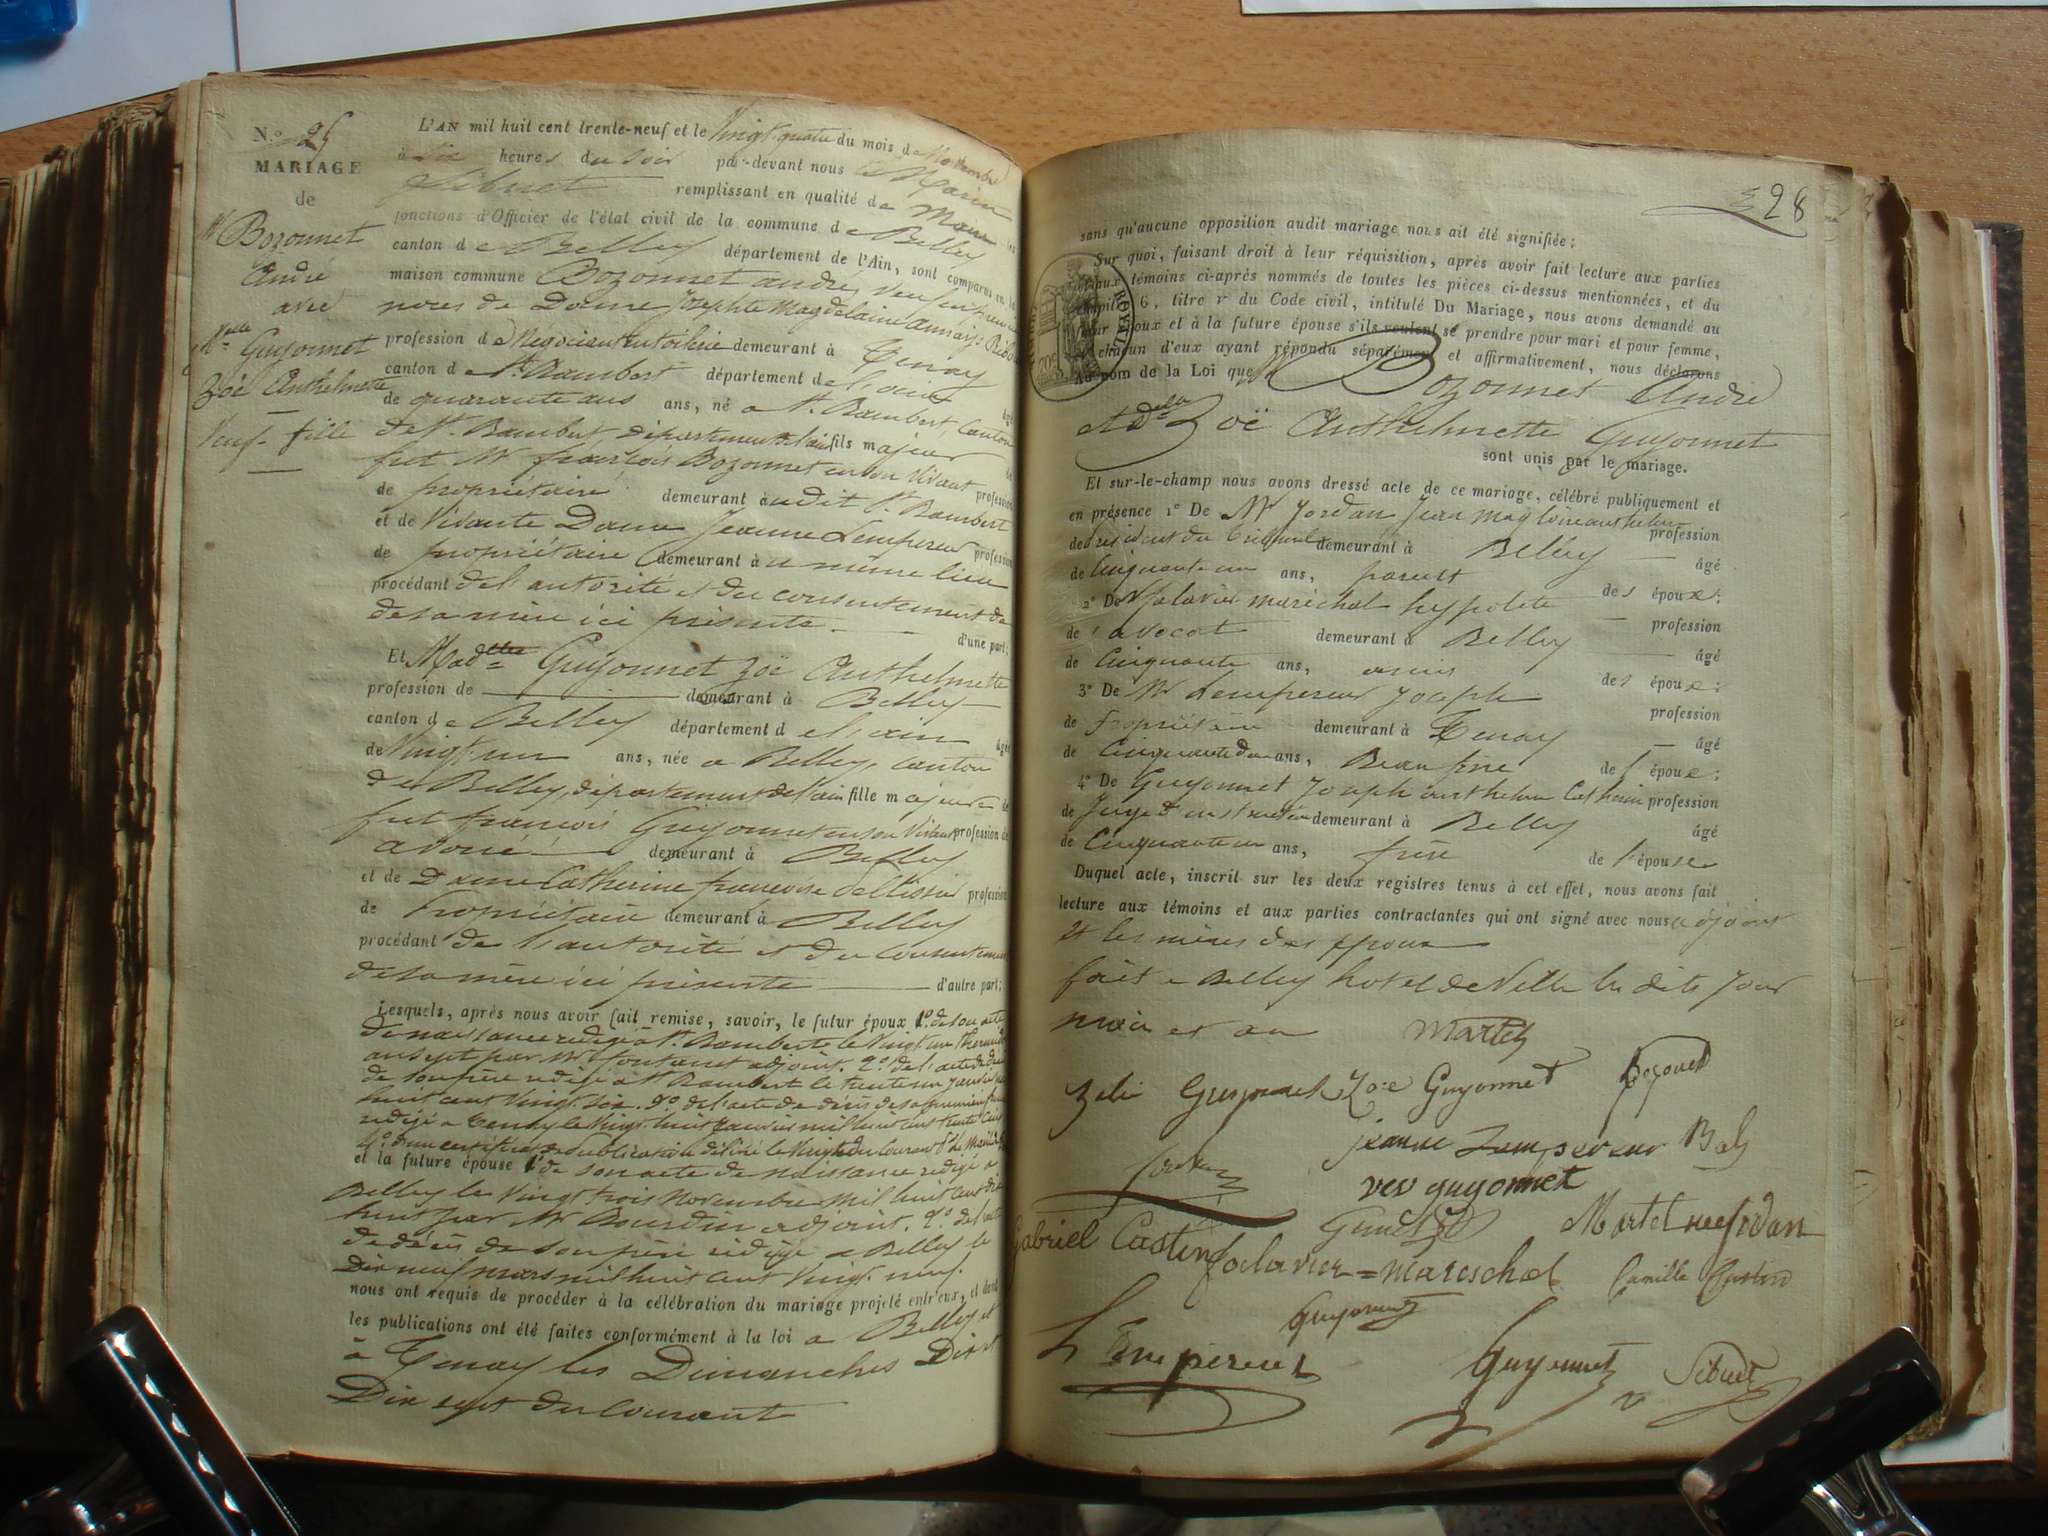 N.o 25
MARIAGE
de
Mr Bozonnet
André
avec
Mlle Guyonnet
Zoé Anthelmette
Veuf - fille
L'AN mil huit cent trente-neuf et le Vingt quatre du mois de Novembre
à dix heures du soir par-devant nous
Sibuet remplissant en qualité de Maire les
fonctions d'Officier de l'état civil de la commune de Belley
canton de Belley département de l'Ain, sont comparus en la
maison commune Bozonnet andré, Veuf en premieres
noces de Dame Josephte Magdelaine
profession de Négociant en toilerie demeurant à Tenay
canton de St Rambert département de l'ain âgé
de quarante ans ans, né a St. Rambert, Canton
de St. Rambert, département de l'ain fils majeur de
fut Mr françois Bozonnet en son Vivant profession
de propriétaire demeurant audit St. Rambert
et de Vivante Dame Jeanne Lempereur profession
de propriétaire demeurant au même lieu
procédant de l'autorité et du consentement de
de sa mère ici présente d'une part;
Et Madlle Guyonnet Zoë Anthelmette
profession de demeurant à Belley
canton de Belley département de l'ain âgée
de Vingt un ans, née a Belley, Canton
de Belley, département de l'ain fille majeure de
fut françois Guyonnet en son Vivant profession de
avoué demeurant à Belley
et de Dame Catherine françoise profession
de Propriétaire demeurant à Belley
procédant de l'autorité et du consentement
de sa mère ici présente d'autre part;
Lesquels, après nous avoir fait remise, savoir, le futur époux 1o. de son acte
de naissance redigé a St. Rambert le Vingt un thermidor
an sept par Mr adjoint. 2o. de l'acte de décès
de son père redigé a St Rambert le trente un
huit cent Vingt six. 3o. de l'acte de décès de sa premiere femme
redigé a Tenay le Vingt huit Janvier mil huit cent trente cinq
4o. d'un certificat de Publication délivré le Vingt du Courant
et la future épouse 1o de son acte de naissance redigé a
Belley le Vingt trois Novembre mil huit cent dix
huit par Mr Bourdin adjoint. 2o. de l'acte
de décès de son père redigé a Belley le
Dix neuf mars mil huit cent Vingt neuf.
nous ont requis de procéder à la célébration du mariage projeté entr'eux, et dont
les publications ont été faites conformément à la loi a Belley et
à Tenay les Dimanches Dix et
Dix sept du Courant
328
sans qu'aucune opposition audit mariage nous ait été signifiée;
Sur quoi, faisant droit à leur réquisition, après avoir fait lecture aux parties
et aux témoins ci-après nommés de toutes les pièces ci-dessus mentionnées, et du
chapitre 6, titre v du Code civil, intitulé Du Mariage, nous avons demandé au
futur époux et à la future épouse s'ils veulent se prendre pour mari et pour femme,
chacun d'eux ayant répondu séparément et affirmativement, nous déclarons
au nom de la Loi que Mr Bozonnet André
et Delle Zoë Anthelmette Guyonnet
sont unis par le mariage.
Et sur-le-champ nous avons dressé acte de ce mariage, célébré publiquement et
en présence 1o De Mr Jordan Jean Magloire anthelme profession
de Président du Tribunal demeurant à Belley âgé
de Cinquante un ans, parent des époux:
2o De Folavier maréchal hypolite profession
de avocat demeurant à Belley âgé
de Cinquante ans, amis des époux:
3o De Mr Lempereur Joseph profession
de Propriétaire demeurant à Tenay âgé
de Cinquante deux ans, Beau frère de l'époux:
4o De Guyonnet Joseph anthelme Catherin profession
de Juge d'instruction demeurant à Belley âgé
de Cinquante un ans, frère de l'épouse
Duquel acte, inscrit sur les deux registres tenus à cet effet, nous avons fait
lecture aux témoins et aux parties contractantes qui ont signé avec nous adjoint
et les mères des époux
fait a Belley hotel de Ville les dits Jour
mois et an Martel
Zelie Guyonnet Zoé Guyonnet Bozonet
jeanne Lempereur
Jordan
vev guyonnet
Martel née Jordan
Gabriel Castin
folavier = mareschal Camille Castin
Guyonnet
Lempereur
Guyonnet Sibuet